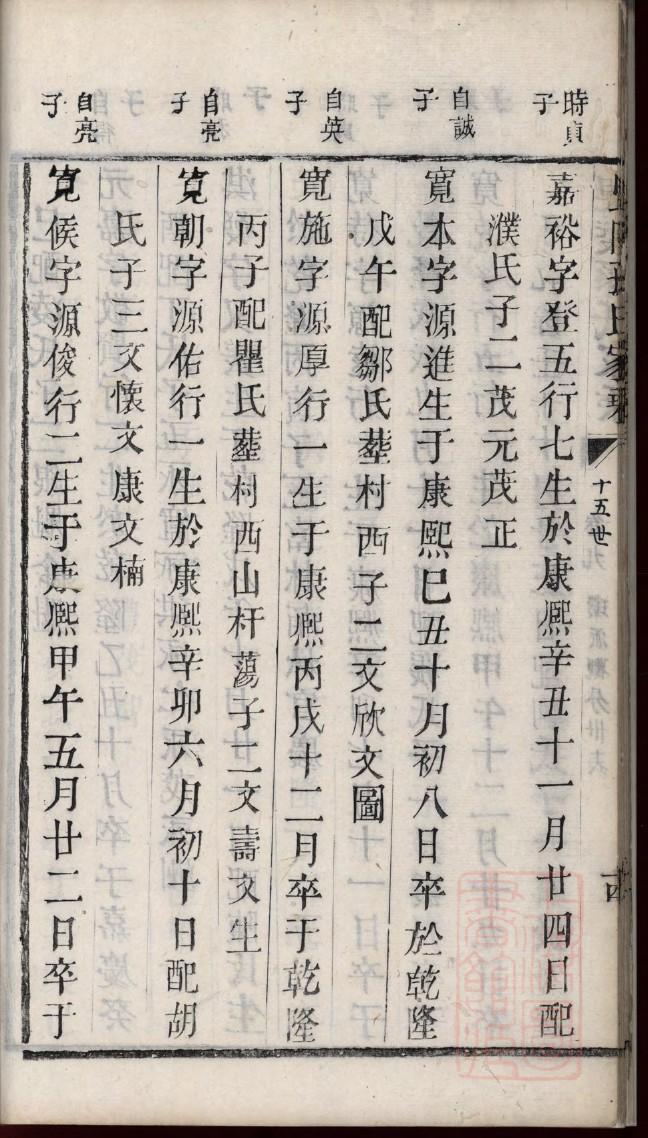 時貞
子
自誠
子
自英
子
自亮
子
自亮
子
十五世
嘉裕字登五行七生於康熙辛丑十一月廿四日配
濮氏子二茂元茂正
寬本字源進生于康熙己丑十月初八日卒於乾隆
戊午配鄒氏塟村西子二文欣文圖
寬施字源厚行一生于康熙丙戌十二月卒于乾隆
丙子配瞿氏塟村西山杆蕩子二文壽文生
寬朝字源佑行一生於康熙辛卯六月初十日配胡
氏子三文懷文康文楠
寬侯字源俊行二生于康熙甲午五月廿二日卒于